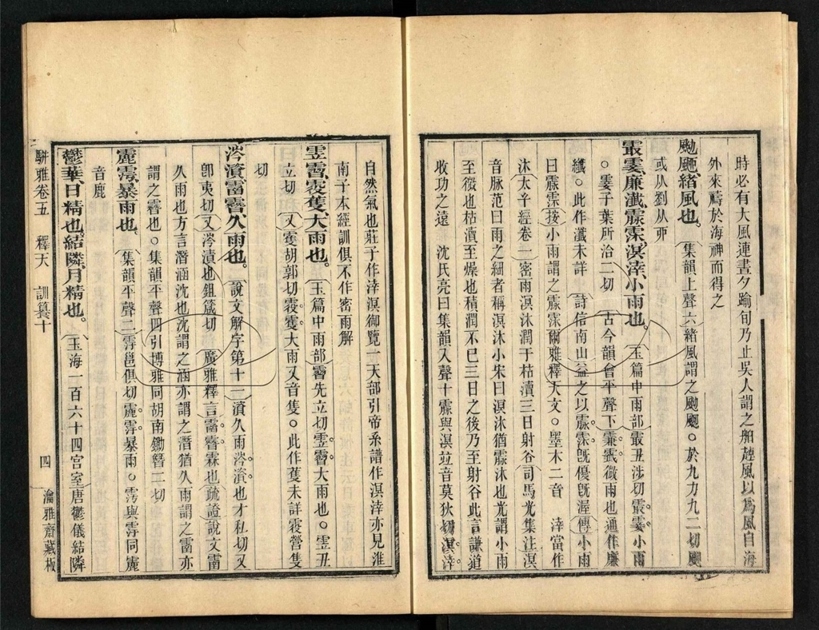 時必有大風連晝夕踰旬乃止吳人謂之舶䑲風以爲風自海
外來禱於海神而得之
颲颲緒風也。集韻上聲六緒風謂之颲颲。於九力九二切颲
或从劉从丣
霢霂廉瀸霥霂溟涬小雨也。玉篇中雨部
霎子葉所洽二切 古今韻會平聲下霥
纎。此作瀸未詳 詩信南山益之以霢霂旣優旣渥傳小雨
曰霢霂按小雨謂之霢霂爾雅釋天文。墨木二音 涬當作
沐太玄經卷一密雨溟沐潤于枯瀆三日射谷司馬光集注溟
音脉范曰雨之細者稱溟沐小宋曰溟沐猶霢沐也光謂小雨
至微也枯瀆至燥也積潤不已三日之後乃至射谷此言謙道
收功之遠 沈氏亮曰集韻入聲十霢與溟竝音莫狄切溟涬
自然氣也莊子作涬溟御覽一天部引帝系譜作溟涬亦見淮
南子本經訓俱不作密雨解
大雨也。玉篇中雨部霫先立切雴霫大雨也。雴丑
立切 又 胡郭切 大雨又音隻。此作隻未詳
切
涔濱霤霪久雨也。說文解字第十一濱久雨涔濱也才私切又
卽夷切又涔濱也鉏箴切 廣雅釋言霤霪霖也疏證說文霤
久雨也方言潛涵沈也沈謂之涵亦謂之潛猶久雨謂之霤亦
謂之霪也。集韻平聲四引博雅同胡南鋤簪二切
霶暴雨也。集韻平聲二 暴雨。
音鹿
鬱華日精也結隣月精也。玉海一百六十四宮室唐鬱儀結隣
駢雅卷五 釋天 訓纂十 四 瀹雅齋藏板